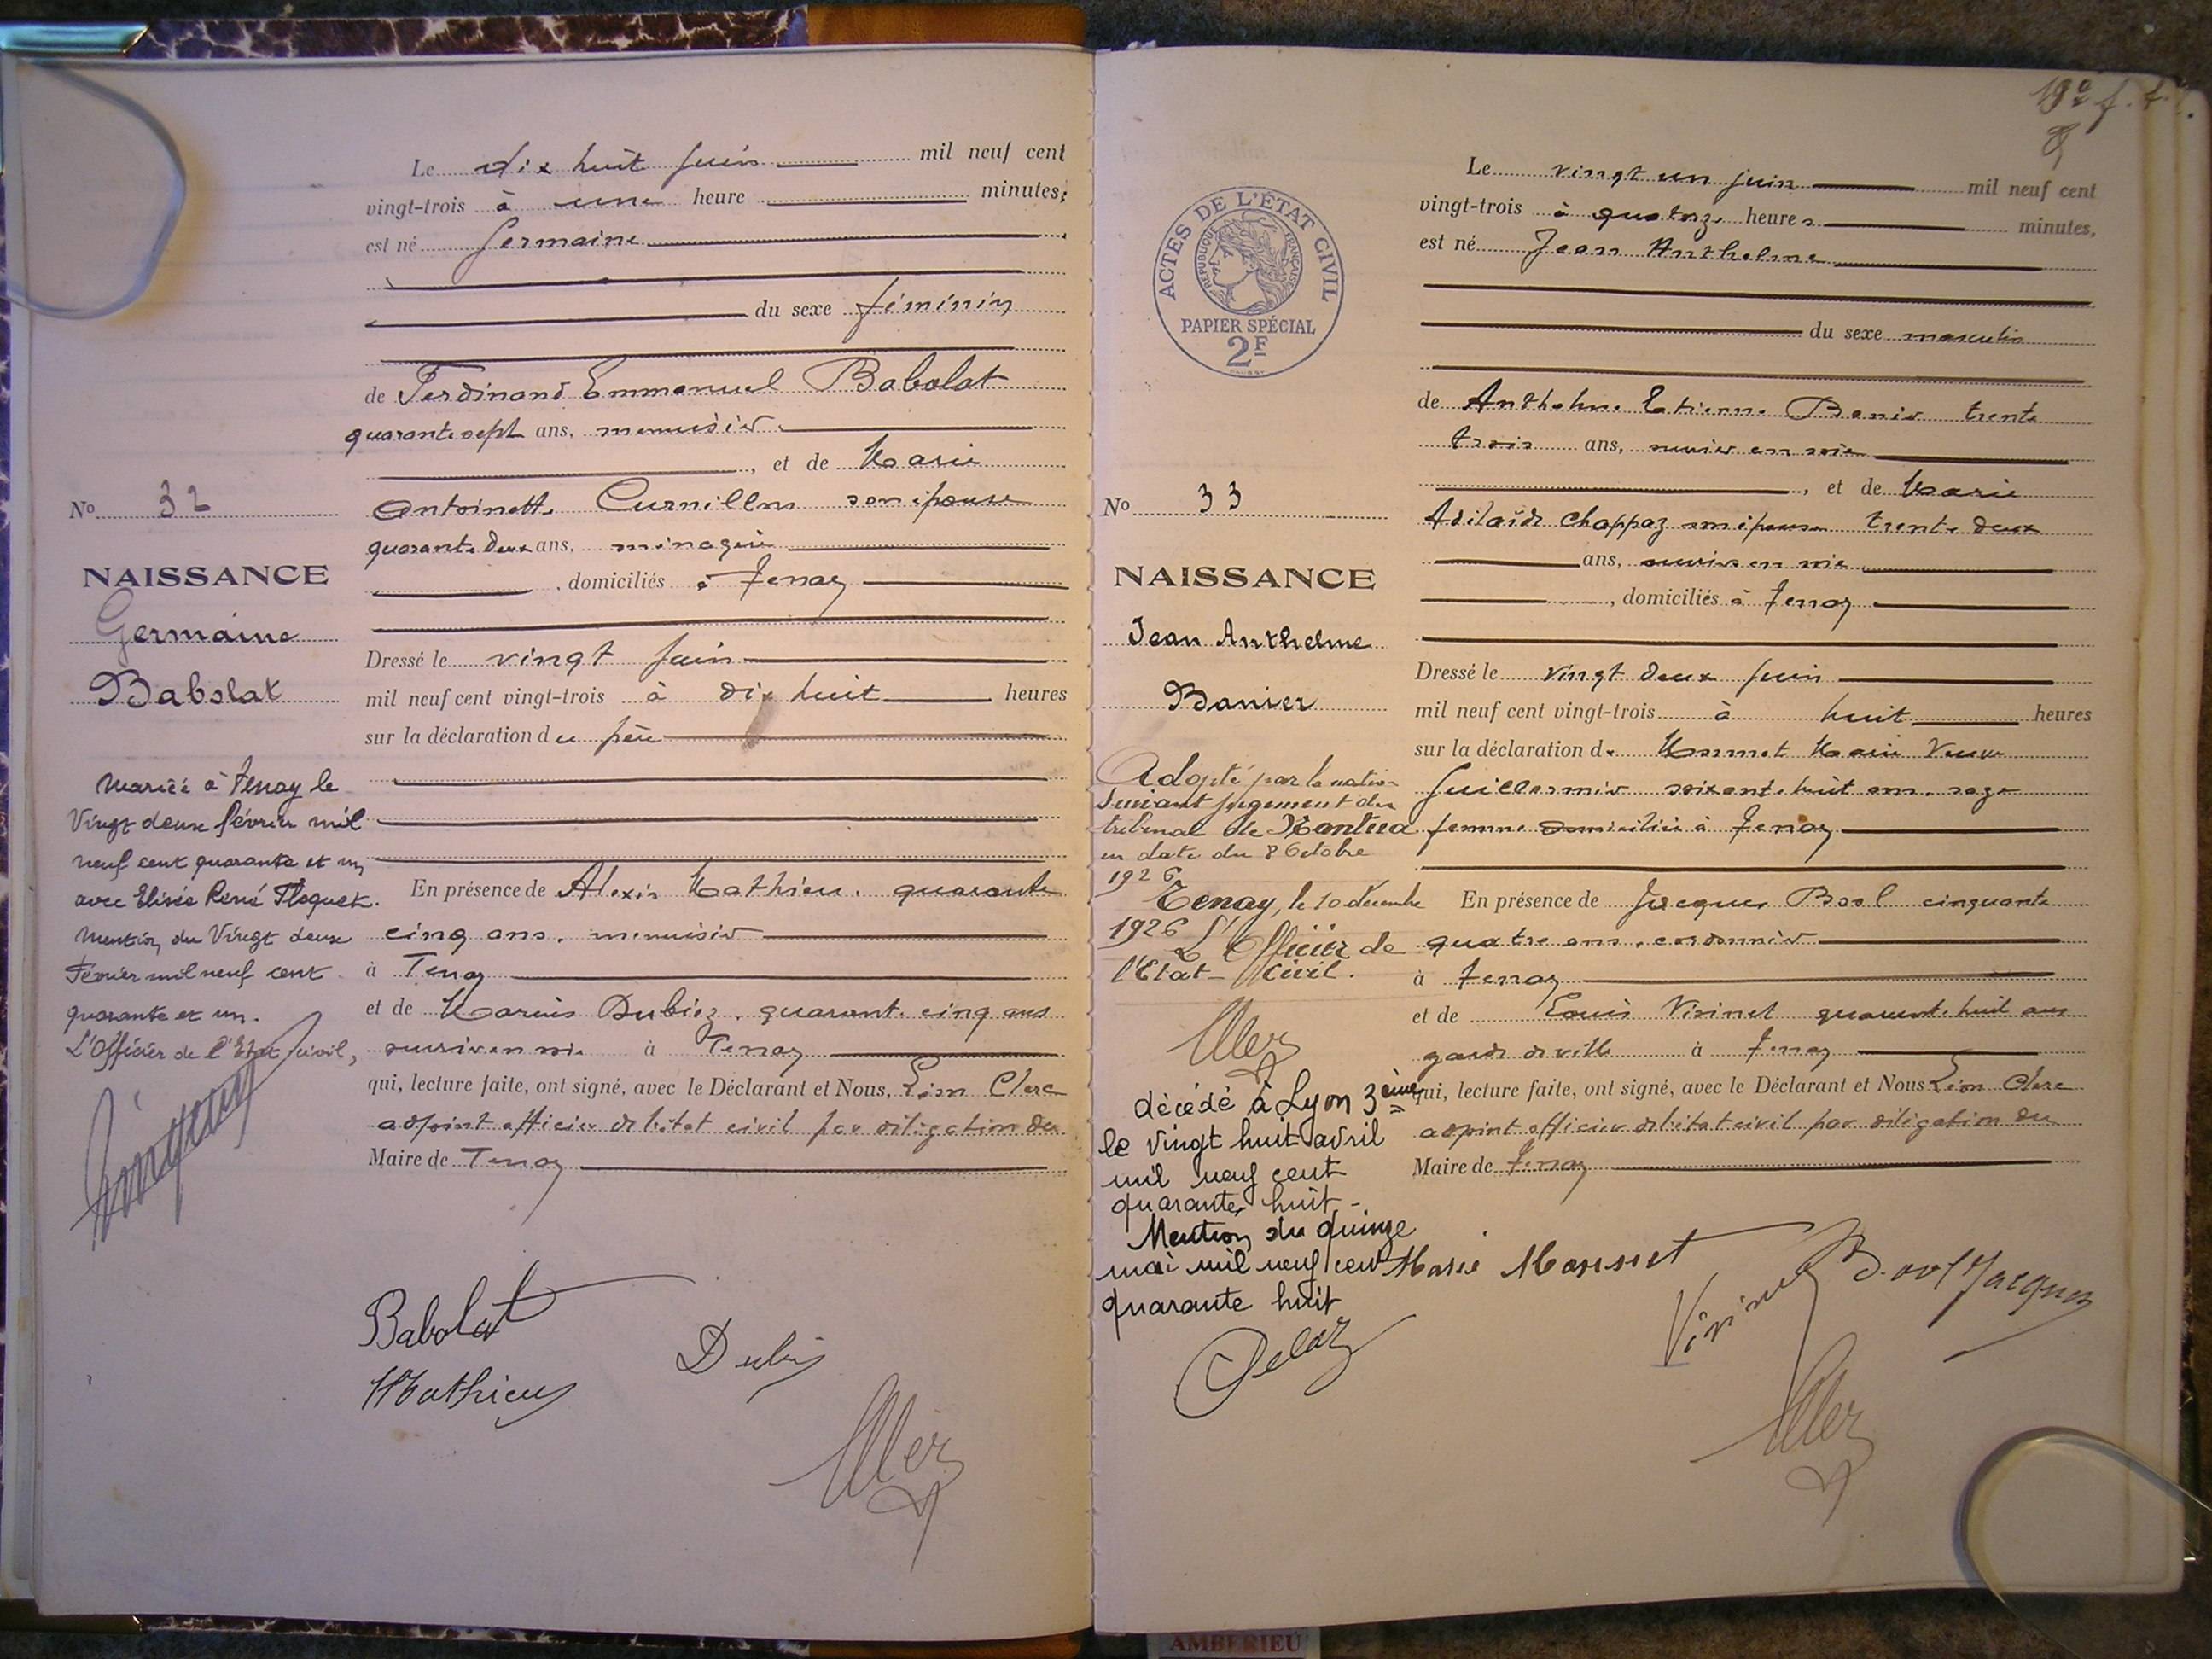 Le dix huit juin mil neuf cent
vingt-trois à une heure minutes,
est né Germaine
du sexe féminin
de Ferdinand Emmanuel Babolat
quarante sept ans, menuisier
, et de Marie
Antoinette Curnillon son épouse
quarante deux ans, ménagère
, domiciliés à Tenay
Dressé le vingt juin
mil neuf cent vingt-trois à dix huit heures
sur la déclaration du père
En présence de Alexis Mathieu, quarante
cinq ans, menuisier
à Tenay
et de Marius Dubiez, quarante cinq ans
ouvrier en soie à Tenay
qui, lecture faite, ont signé, avec le Déclarant et Nous, Léon Clerc
adjoint officier de l'état civil par délégation du
Maire de Tenay
No 32
NAISSANCE
Germaine
Babolat
Mariée à Tenay le
Vingt deux février mil
neuf cent quarante et un
avec Elisée René Floquet.
Mention du Vingt deux
Février mil neuf cent
quarante et un.
L'Officier de l'Etat civil,
Babolat
Mathieu
19e f.
ACTES DE L'ÉTAT CIVIL
RÉPUBLIQUE FRANÇAISE
PAPIER SPÉCIAL
2F
Le vingt un juin mil neuf cent
vingt-trois à quatorze heures minutes,
est né Jean Anthelme
du sexe masculin
de Anthelme Etienne Banier trente
trois ans, ouvrier en soie
, et de Marie
Adélaïde Chappaz son épouse trente deux
ans, ouvrière en soie
, domiciliés à Tenay
Dressé le vingt deux juin
mil neuf cent vingt-trois à huit heures
sur la déclaration de Monnet Marie Veuve
Guillermin soixante huit ans, sage
femme domiciliée à Tenay
En présence de Jacques Bool cinquante
quatre ans, cordonnier
à Tenay
et de Louis Virinet quarante huit ans
garde de ville à Tenay
qui, lecture faite, ont signé, avec le Déclarant et Nous Léon Clerc
adjoint officier de l'état civil par délégation du
Maire de Tenay
No 33
NAISSANCE
Jean Anthelme
Banier
Adopté par la nation
suivant jugement du
tribunal de Nantua
en date du 8 Octobre
1926
Tenay, le 10 décembre
1926
L'Officier de
l'Etat-Civil.
décédé à Lyon 3ème
le vingt huit avril
mil neuf cent
quarante huit -
Mention du quinze
mai mil neuf cent
quarante huit
Marie Monnet
Virinet
Bool Jacques
AMBERIEU